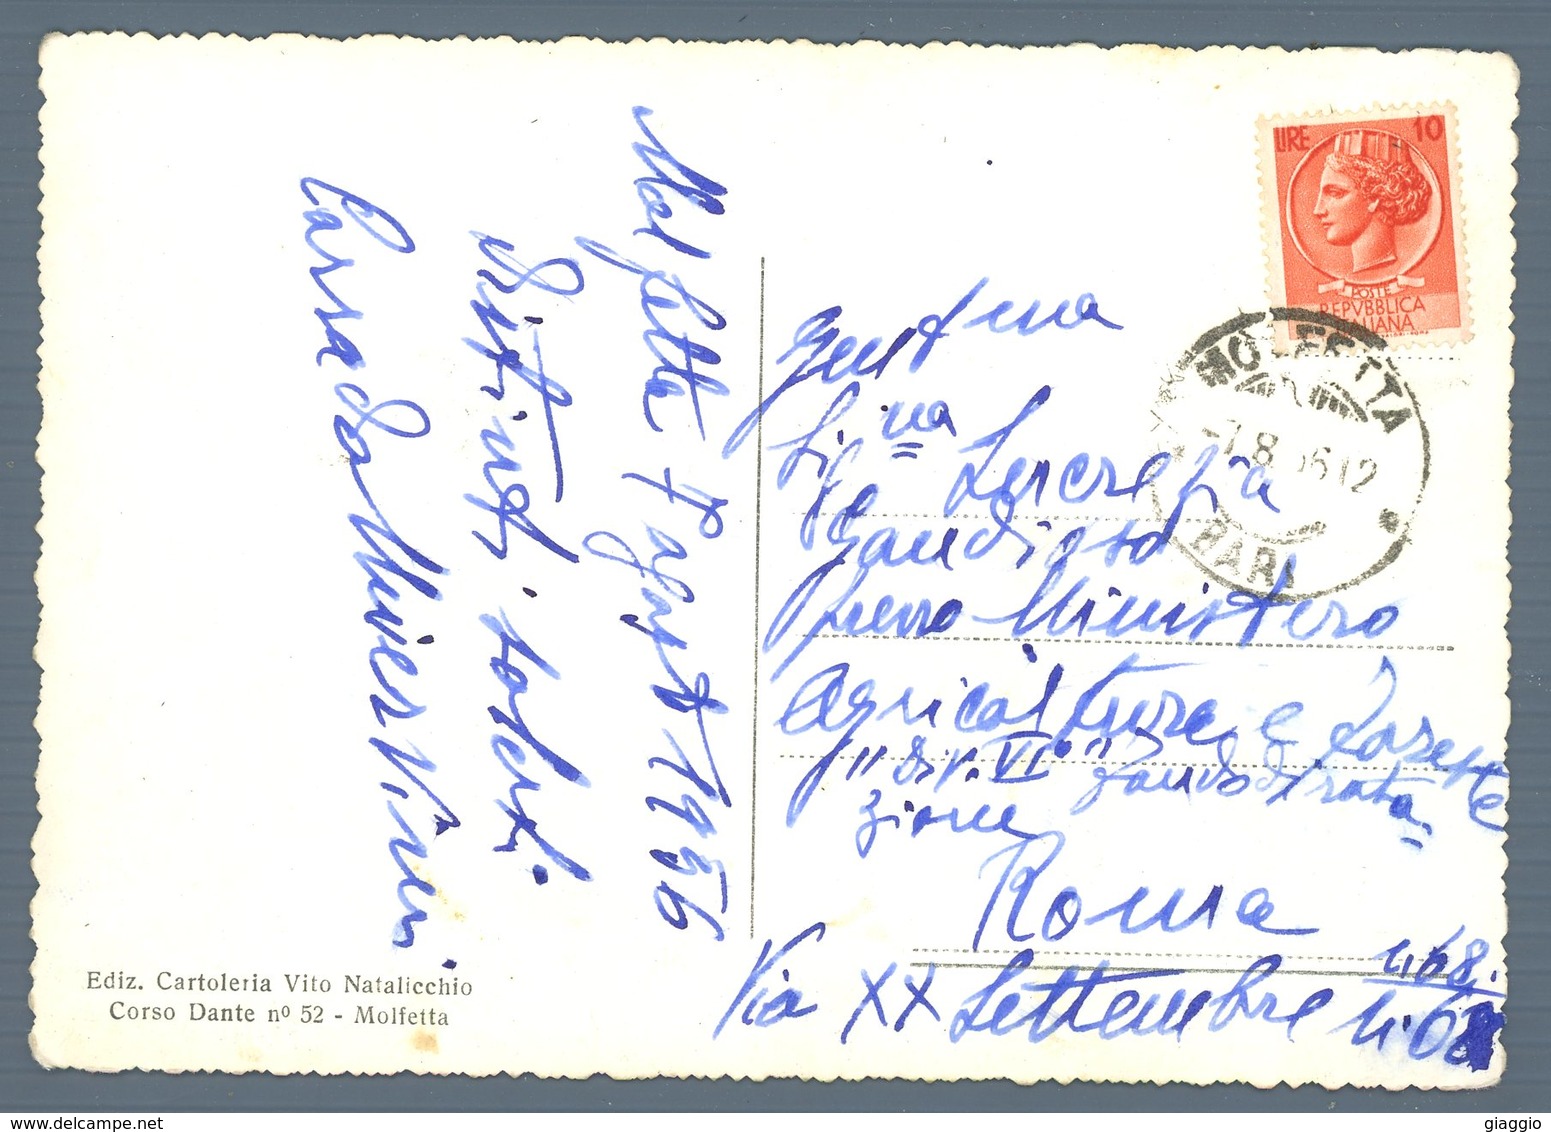 Molfetta 7 agosto 1956
Distinti saluti
Corrado
Ediz. Cartoleria Vito Natalicchio
Corso Dante nº 52 - Molfetta
LIRE 10
POSTE
REPVBBLICA
ITALIANA
MOLFETTA
-7.8.56.12
BARI
Gent.ma
Sig.na Lucrezia
Gaudioso
presso Ministero
Agricoltura e Foreste
"Div. VI"
zione
Roma
n. 68.
Via XX Settembre
delcampe.net
giaggio